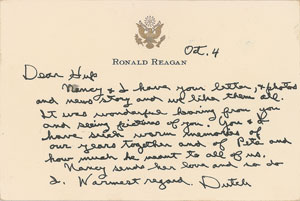 RONALD REAGAN
Oct. 4
Dear Hup
Nancy & I have your letter, & photos
and news story and we like them all.
It was wonderful hearing from you
and seeing pictures of you. You & I
have such warm memories of
our years together and of Pete and
how much he meant to all of us.
Nancy sends her love and so do
I. Warmest regard. Dutch